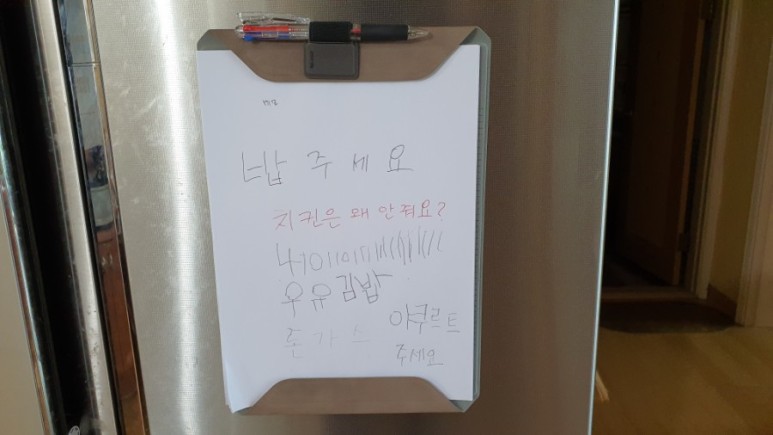 밥 주 세 요
치킨은 왜 안 줘요?
우유김밥
돈 가 스
야쿠르트
주세요